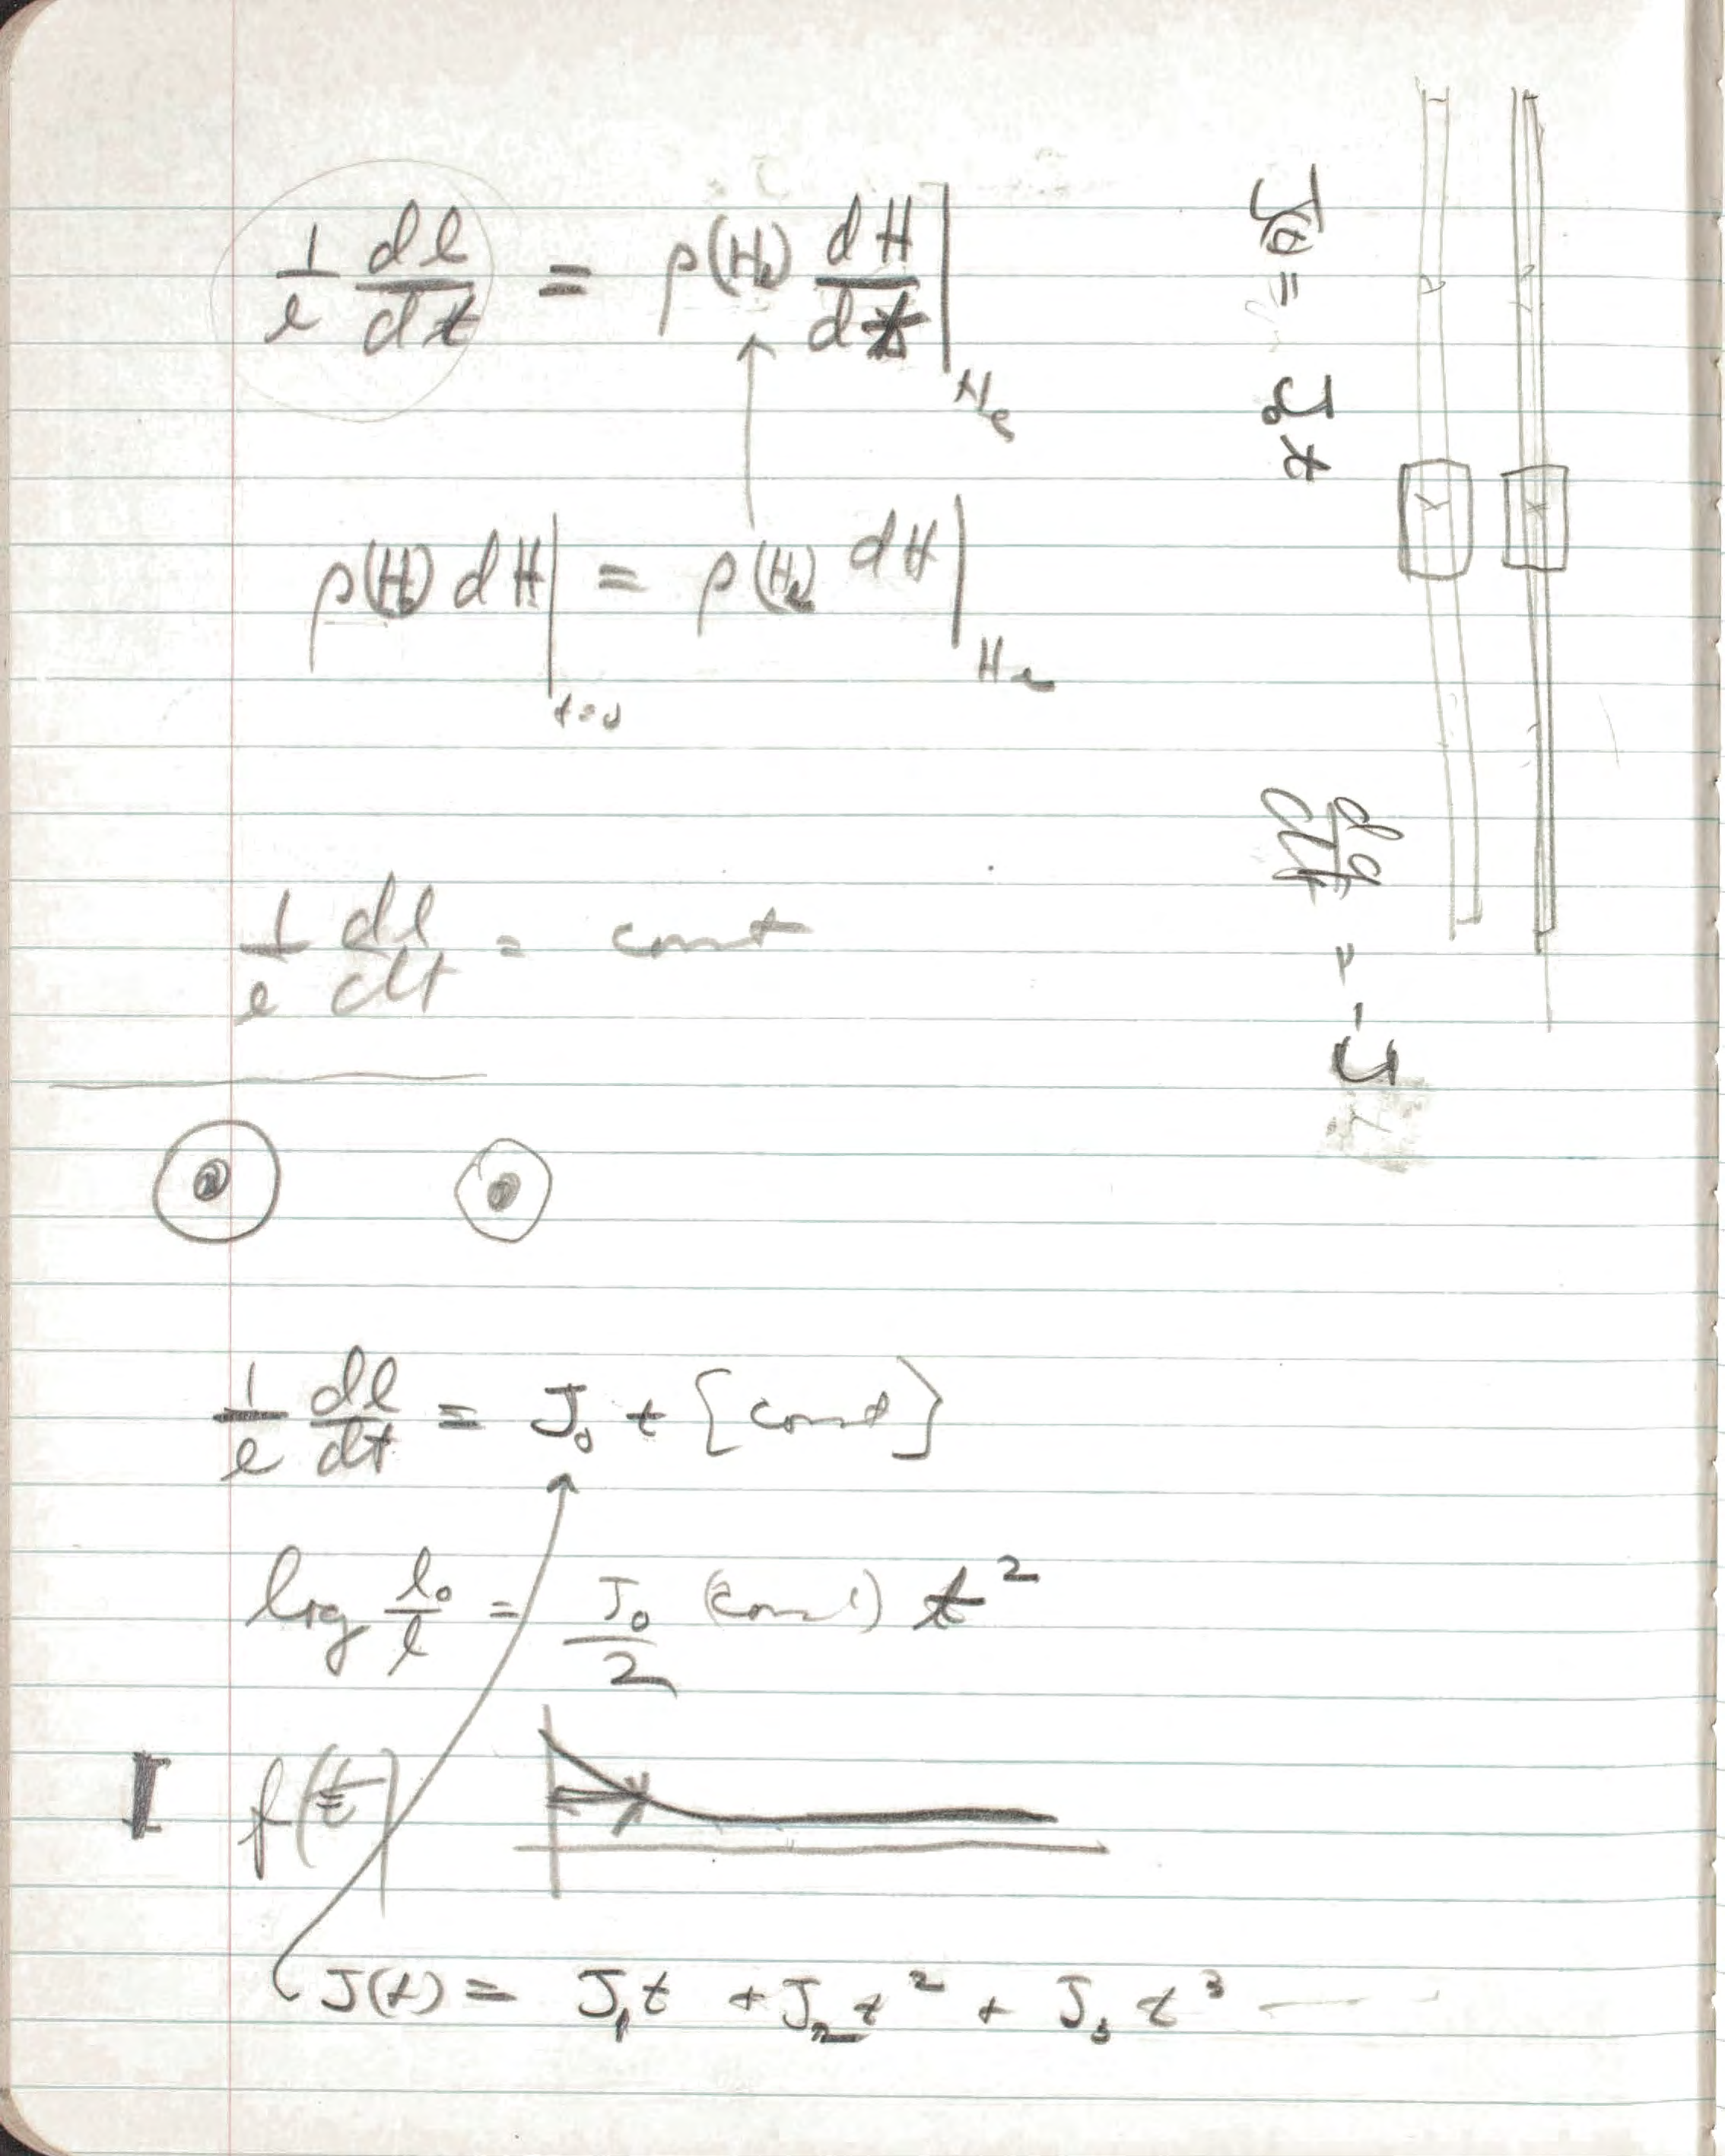 1/l dl/dt = ρ(H_e) dH/dt |_{H_e}
ρ(H) dH |_{t=0} = ρ(H_e) dH |_{H_e}
1/l dl/dt = const
1/l dl/dt = J_0 t [const]
log l_0/l = J_0/2 (const) t^2
I f(t)
J(t) = J_1 t + J_2 t^2 + J_3 t^3 ----
= J_0 t
dq/dt = -J